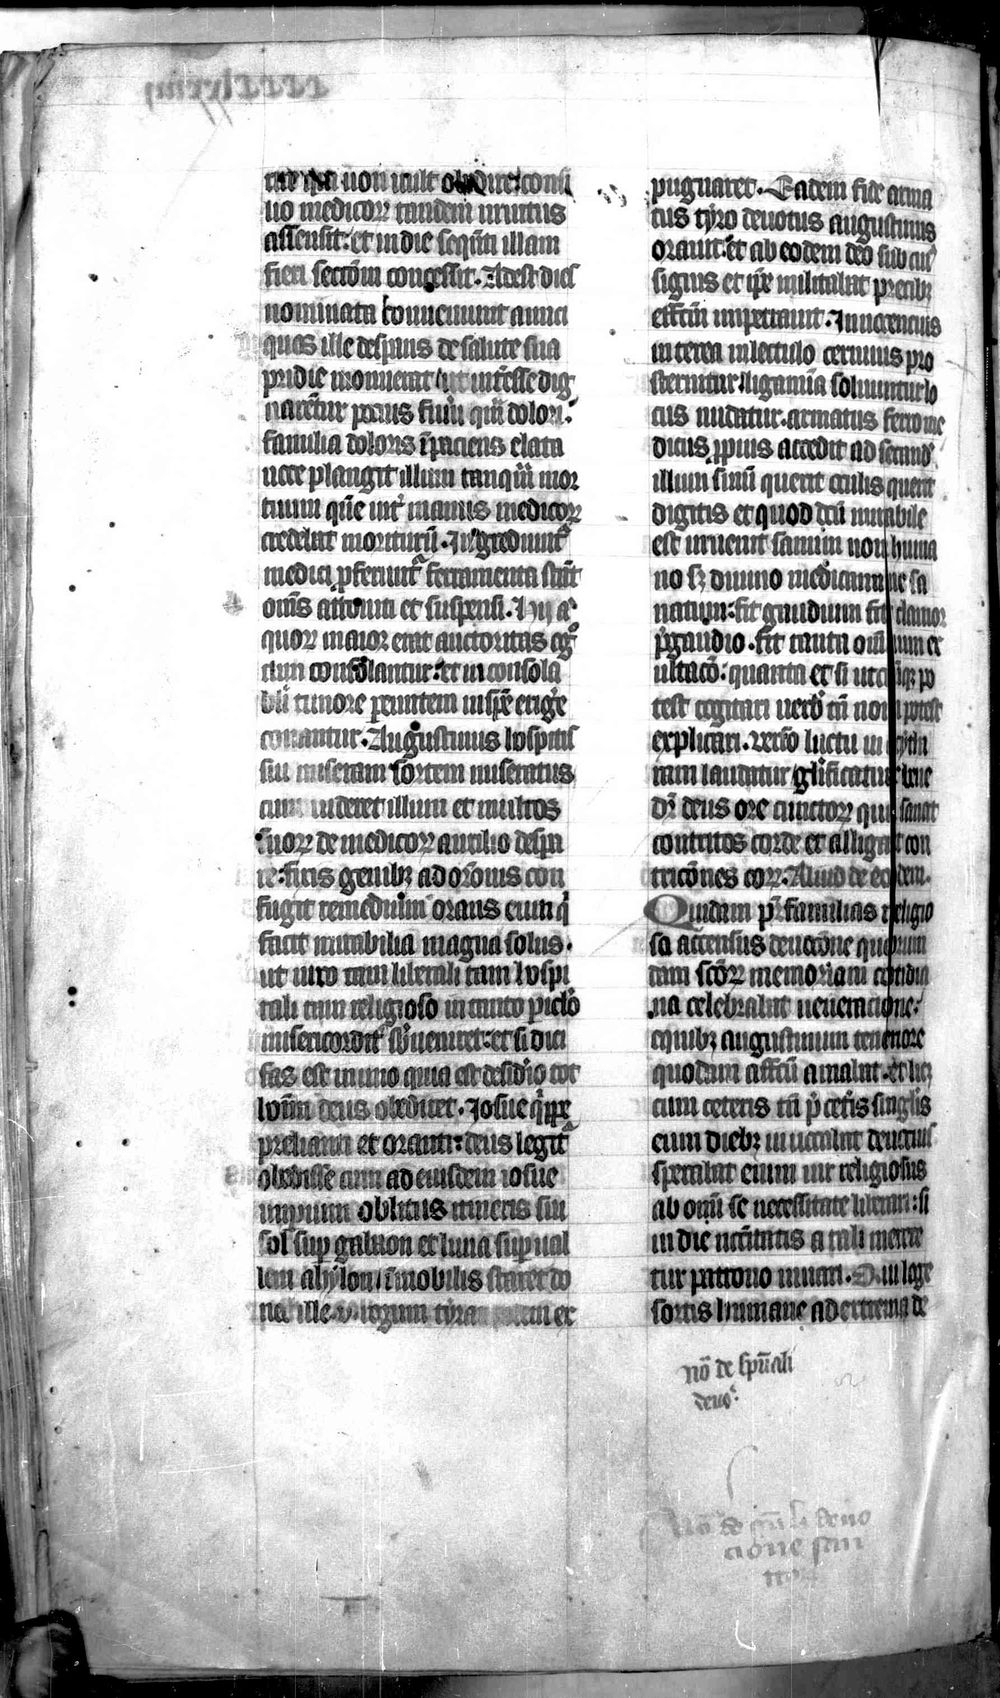 non uult consi
lio medicorꝝ tandem inuitus
assensit: et in die seqͣnti illam
fieri sectōm concessit. Adest dies
nominata conueniunt amici
quos ille despans de salute sua
pridie monuerat ut inte͛sse dig
narēntur pocius funeri qͣm dolori.
familia doloris īpaciens elata
uoce plangit illum tanqͣm mor
tuum quē int͛ manus medicorꝝ
credebat moriturū. Ingrediuntᷣ
medici ꝓferuntᷣ ferramenta stāt
om̄s attoniti et suspensi. Hij a
quorꝝ maior erat auctoritas eg͛
tum consolantur: et inconsola
bili timore ꝑeuntem in spē erige͛
conantur. Augustinus hospitis
sui miseram sortem miseratus
cum uideret illum et multos
suorꝝ de medicorꝝ auxilio despa
re: fixis genibꝫ ad orōnis con
fugit remedium orans eum qͥ
facit mirabilia magna solus.
ut uiro tam liberali tam hospi
tali tam religioso in tanto piclō
misericordit͛ subueniret: et si dici
fas est immo quia est desid͛io tot
hoīm deus obediret. Iosue qͥppe
prelianti et oranti: deus legitᷣ
obedisse cum ad eiusdem iosue
imperium oblitus itineris sui
sol suꝑ gabaon et luna suꝑ ual
lem ahylon īmobilis staret do
nec ille ex
pugnaret. Eadem fide arma
tus tyro deuotus augustinus
orauit: et ab eodem deo sub cui͛
signis et ip̄e militabat precibꝫ
effectū impetrauit. Innocencius
interea in lectulo ceruuus pro
sternitur ligamīa soluuntur lo
cus nudatur. armatus ferro me
dicus ꝓpius accedit ad secand͛
illum sinū querit oculis querit
digitis et quod dictū mirabile
est inuenit sanum non huma
no sꝫ diuino medicamine sa
natum: fit gaudium fit clamor
p̄ gaudio. fit tanta omnium ex
ultacō: quanta et si utcūqꝫ po
test cogitari uerbo tn̄ non potest
explicari. Verso luctu in cytha
ram laudatur glificatur bene
dr̄ deus ore cunctorꝝ qui sanat
contritos corde et alligat con
tricōnes eorꝝ. Aliud de eodem.
Quidam pr̄familias religio
sa accensus deuocōne quorum
dam scōrꝝ memoriam cotidia
na celebrabat ueneracione.
equibꝫ augustinum teneriore
quodam affectū amabat. et licꝫ
cum ceteris tn̄ p̄ cet͛is singlis
eum diebꝫ inuocabat deuocius
sperabat enim uir religiosus
ab omni se necessitate liberari: si
in die necītatis a tali merere
tur patrono iuuari. Qui lege
sortis humane ad extrema de
nō de spūali
deuo͛
Nō de spūali deuo
cione san